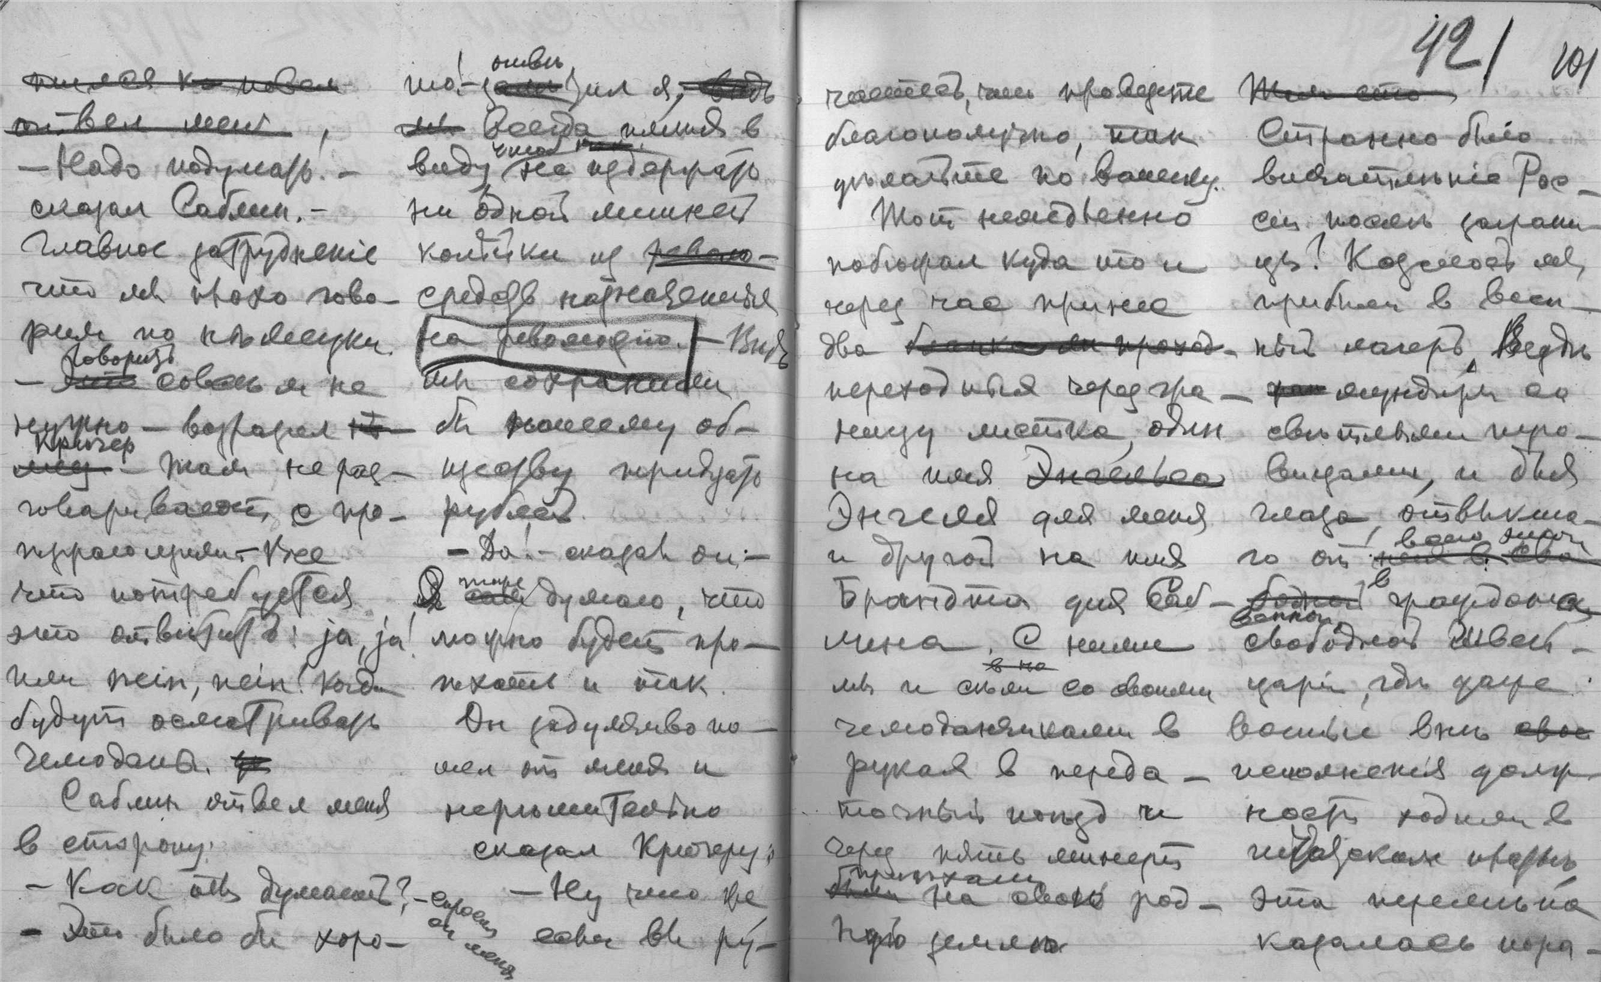 42/
101
ответ меня,
— Надо подумать. —
сказал Саблин. —
Главное затрудненіе
что мы плохо гово-
рим по нѣмецки.
Говорить
— совсѣм не
нужно — возразил
Крюгер
— там не раз-
говаривают с про-
ѣзжающими. Все
что потребуется
это отвѣтить: ja, ja!
или nein, nein! когда
будут осматривать
чемоданы.
Саблин отвел меня
в сторону:
— Как ты думаешь? — спросил он меня
— Это было бы хоро-
шо! — отвѣтил я,
Всегда имѣя в
виду не издержать
ни одной лишней
копѣйки из
средств назначенных
на революцію. — Вѣдь
мы сохранили
бы нашему об-
ществу тридцать
рублей.
— Да! — сказал он: —
Я тоже думаю, что
можно будет про-
ѣхать и так.
Он задумчиво по-
шел от меня и
нерѣшительно
сказал Крюгеру:
— Ну что же
если вы ру-
чаетесь, что проведете
благополучно, так
дѣлайте по вашему.
Тот немедленно
побѣжал куда то и
через час принес
два
переходных через гра-
ницу листка, один
на имя Энгельса
Энгеля для меня
и другой на имя
Брандта для Саб-
лина. С ними
мы и сѣли со своими
чемоданчиками в
руках в переда-
точный поѣзд и
через пять минут
пріѣхали
на свою род-
ную землю
Странно было
впечатлѣніе Рос-
сіи послѣ заграни-
цы! Казалось мы
прибыли в воен-
ный лагерь. Вездѣ
мундиры со
свѣтлыми пуго-
вицами, и для
глаза, отвыкша-
го от всего этого
в гражданской
свободной Швей-
царіи, гдѣ даже
военные внѣ
исполненія долж-
ности ходили в
штатском платьѣ,
эта перемѣна
казалась пора-